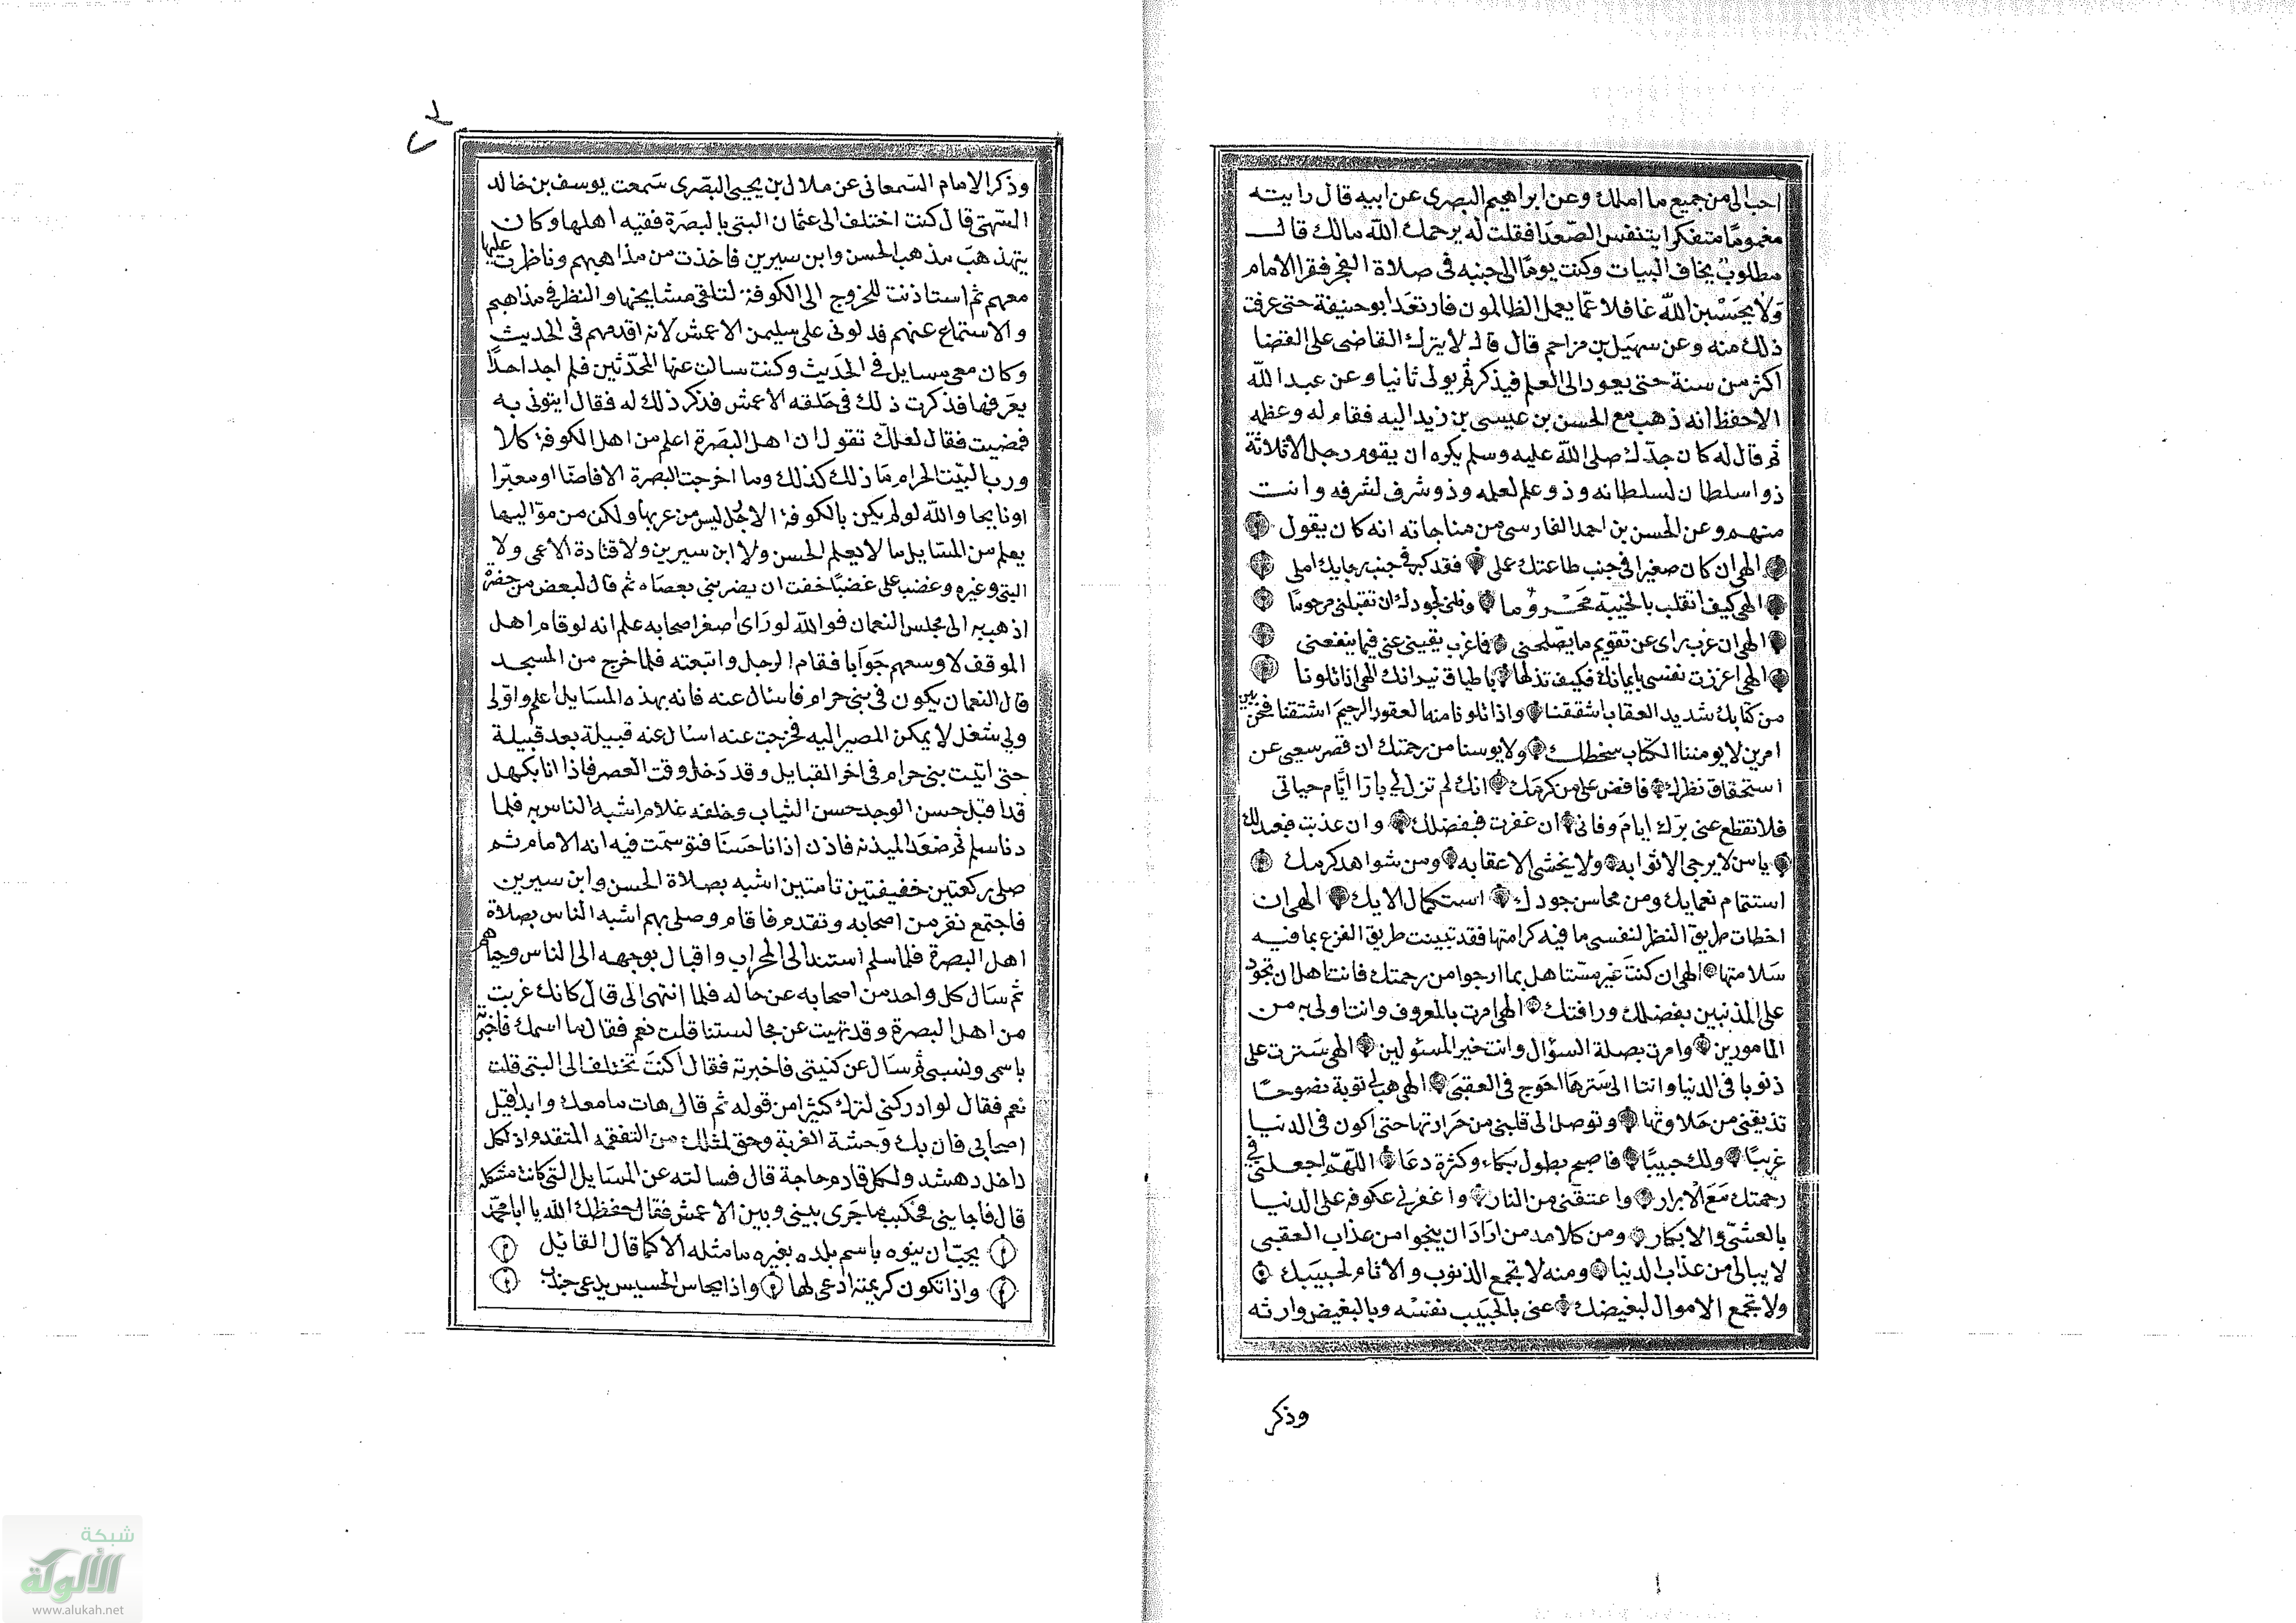 احب الى من جميع ما املك وعن ابراهيم البصرى عن ابيه قال رايته
مغموما متفكرا يتنفس الصّعدا فقلت له يرحمك الله مالك قال
مطلوب يخاف البيات وكنت يومًا الى جنبه فى صلاة الفجر فقرا الامام
وَلا يحَسْبن الله غافلا عمّا يعمل الظالمون فارتعَد ابو حنيفة حتى عرفت
ذلك منه وعن سهيل بن مزاحم قال قال لا يترك القاضى على القضا
اكثر من سنة حتى يعود الى العلم فيذكر ثم يولى ثانيا وعن عبد الله
الاحفظ انه ذهب مع الحسن بن عيسى بن زيد اليه فقام له وعظمه
ثم قال له كان جدّك صلى الله عليه وسلم يكره ان يقوم رجل الا ثلاثة
ذوا سلطان لسلطانه وذو علم لعلمه وذو شرف لشرفه وانت
منهم وعن الحسن بن احمد الفارسى من مناجاته انه كان يقول
الهى ان كان صغيرا فى جنب طاعتك على فقد كبر فى جنب رجايك املى
الهى كيف اتقلب بالخيبة محَروُما وظنى لجودك ان تقبلنى مرحومًا
الهى ان عزب راى عن تقويم ما يصّلحنى فاغرب يقينى عنى فيما ينفعنى
الهى اعززت نفسى بايمانك فكيف تذلها باطباق نيرانك الهى اذا تلونا
من كتابك شديد العقاب اشفقنا واذا تلونا منه العفور الرحيم اشتقنا فنحن بين
امرين لا يومننا الكتاب سخطك ولا يوسنا من رحمتك ان قصر سعيى عن
استحقاق نظرك فافض على من كرمَك انك لم تزل لى بارّا ايَّام حياتى
فلا تقطع عنى برّك ايام وفانى ان غفرت فبفضلك وان عذبت فبعدلك
يا من لا يرجى الا ثوابه ولا يخشى الا عقابه ومن شواهد كرمك
استتمام نعمايك ومن محاسن جودك استكمال الايك الهى ان
اخطات طريق النظر لنفسى ما فيه كرامتها فقد تبينت طريق الفزع بما فيه
سَلامتها الهى ان كنت غير مسّتاهل بما ارجوا من رحمتك فانت اهل ان تجود
على المذنبين بفضلك ورافتك الهى امرت بالمعروف وانت اولى به من
المامورين وامرت بصلة السؤال وانت خير المسئولين الهى سَترت على
ذنوبا فى الدنيا وانا الى سَترها احوَج فى العقبَى الهى هب لى توبة نصوحًا
تذيقنى من حَلاوتها وتوصل الى قلبنى من حَرارتها حتى اكون فى الدنيا
غريبًا ولك حبيبًا فاصبح بطول بكاء وكثرة دعَا اللهمّ اجعلنى فى
رحمتك مَع الابرار واعتقنى من النار واغفر لى عكوفه على الدنيا
بالعشىّ والابكار ومن كلامه من ارَادَ ان ينجوا من عذاب العقبى
لا يبالى من عذاب الدنيا ومنه لا تجمع الذنوب والاثام لحبيبك
ولا تجمع الاموال لبغيضك عنى بالحبيب نفسْه وبالبغيض وارثه
وذكر
وذكر الامام السّمعانى عن ملال بن يحيى البَصرى سَمعت يوسف بن خالد
السّهتى قال كنت اختلف الى عثمان البتى بالبصَرة فقيه اهلها وكان
يتهذهَب مذهب الحسن وابن سيرين فاخذت من مذاهبهم وناظرت عليها
معهم ثم استاذنت للخروج الى الكوفة لتلقى مشايخها والنظر فى مذاهبم
والاستماع عنهم فدلونى على سليمن الاعمش لانه اقدمهم فى الحديث
وكان معى مسايل فى الحَديث وكنت سالت عنها المحَدّثين فلم اجد احدًا
يعرفها فذكرت ذلك فى حَلقه الاعمش فذكر ذلك له فقال ايتونى به
فمضيت فقال لعلك تقول ان اهل البصَرة اعلم من اهل الكوفة كلا
ورب البيّت الحرام مَا ذلك كذلك وما اخرجت البصرة الا قاصًا او معبّرا
او نايحا والله لو لم يكن بالكوفة الا رجُل ليس من عربها ولكن من مواليها
يعلم من المسَايل ما لا يعلم الحسن ولا ابن سيرين ولا قتادة الاعمى ولا
البتى وغيره وغضب على غضبًا خفت ان يضربنى بعصَاه ثم قال لبعض من حضرة
اذهب به الى مجلس النعمان فوالله لو رَاى اصغر اصحابه علم انه لو قام اهل
الموقف لاوسعهم جَوَابا فقام الرجل واتبعته فلما خرج من المسجد
قال النعمان يكون فى بنى حرام فاسْال عنه فانه بهذه المسَايل اعلم واوّلى
ولى شغل لا يمكن المصير اليه فخرجت عنه اسْال عنه قبيلة بعد قبيلة
حتى اتيت بنى حرام فى اخر القبايل وقد دَخل وقت العصر فاذا انا بكهل
قد اقبل حسن الوجه حسن الثياب وخلفه غلام اشبه الناس به فلما
دنا سلم ثم ضعَد الميذنه فاذن اذانا حَسَنًا فتوسمّت فيه انه الامام ثم
صلى ركعتين خفيفتين تامتين اشبه بصلاة الحسن وابن سيرين
فاجتمع نفر من اصحابه وتقدم فاقام وصلى بهم اشبه الناس بصلاة
اهل البصرة فلما سلم استند الى المحراب واقبال بوجهه الى الناس وحياهم
ثم سَال كل واحد من اصحابه عن حاله فلما انتهى الى قال كانك غريب
من اهل البصرة وقد نهيت عن مجالستنا قلت نعم فقال ما اسمك فاخبرته
باسمى ونسبى ثم سَال عن كنيتى فاخبرته فقال اكنتَ تختلف الى البتى قلت
نعم فقال لو ادركنى لترك كثيرا من قوله ثم قال هات ما معك وابد قبل
اصحابى فان بك وَحشة الغربة وحق لمثلك من التفقه المتقدم اذ لكل
داخل دهشه ولكل قادم حاجة قال فسالته عن المسَايل التى كانت مشكله
قال فاجابنى فحكيت ما جَرى بينى وبين الاعمش فقال حفظك الله يا ابا محمّد
يحبّ ان ينوه باسم بلده بغيره ما مثله الا كما قال القائل
واذا تكون كريهة ادعى لها واذا يحاس الحسيس يدعى جندب
شبكة
الألوكة
www.alukah.net